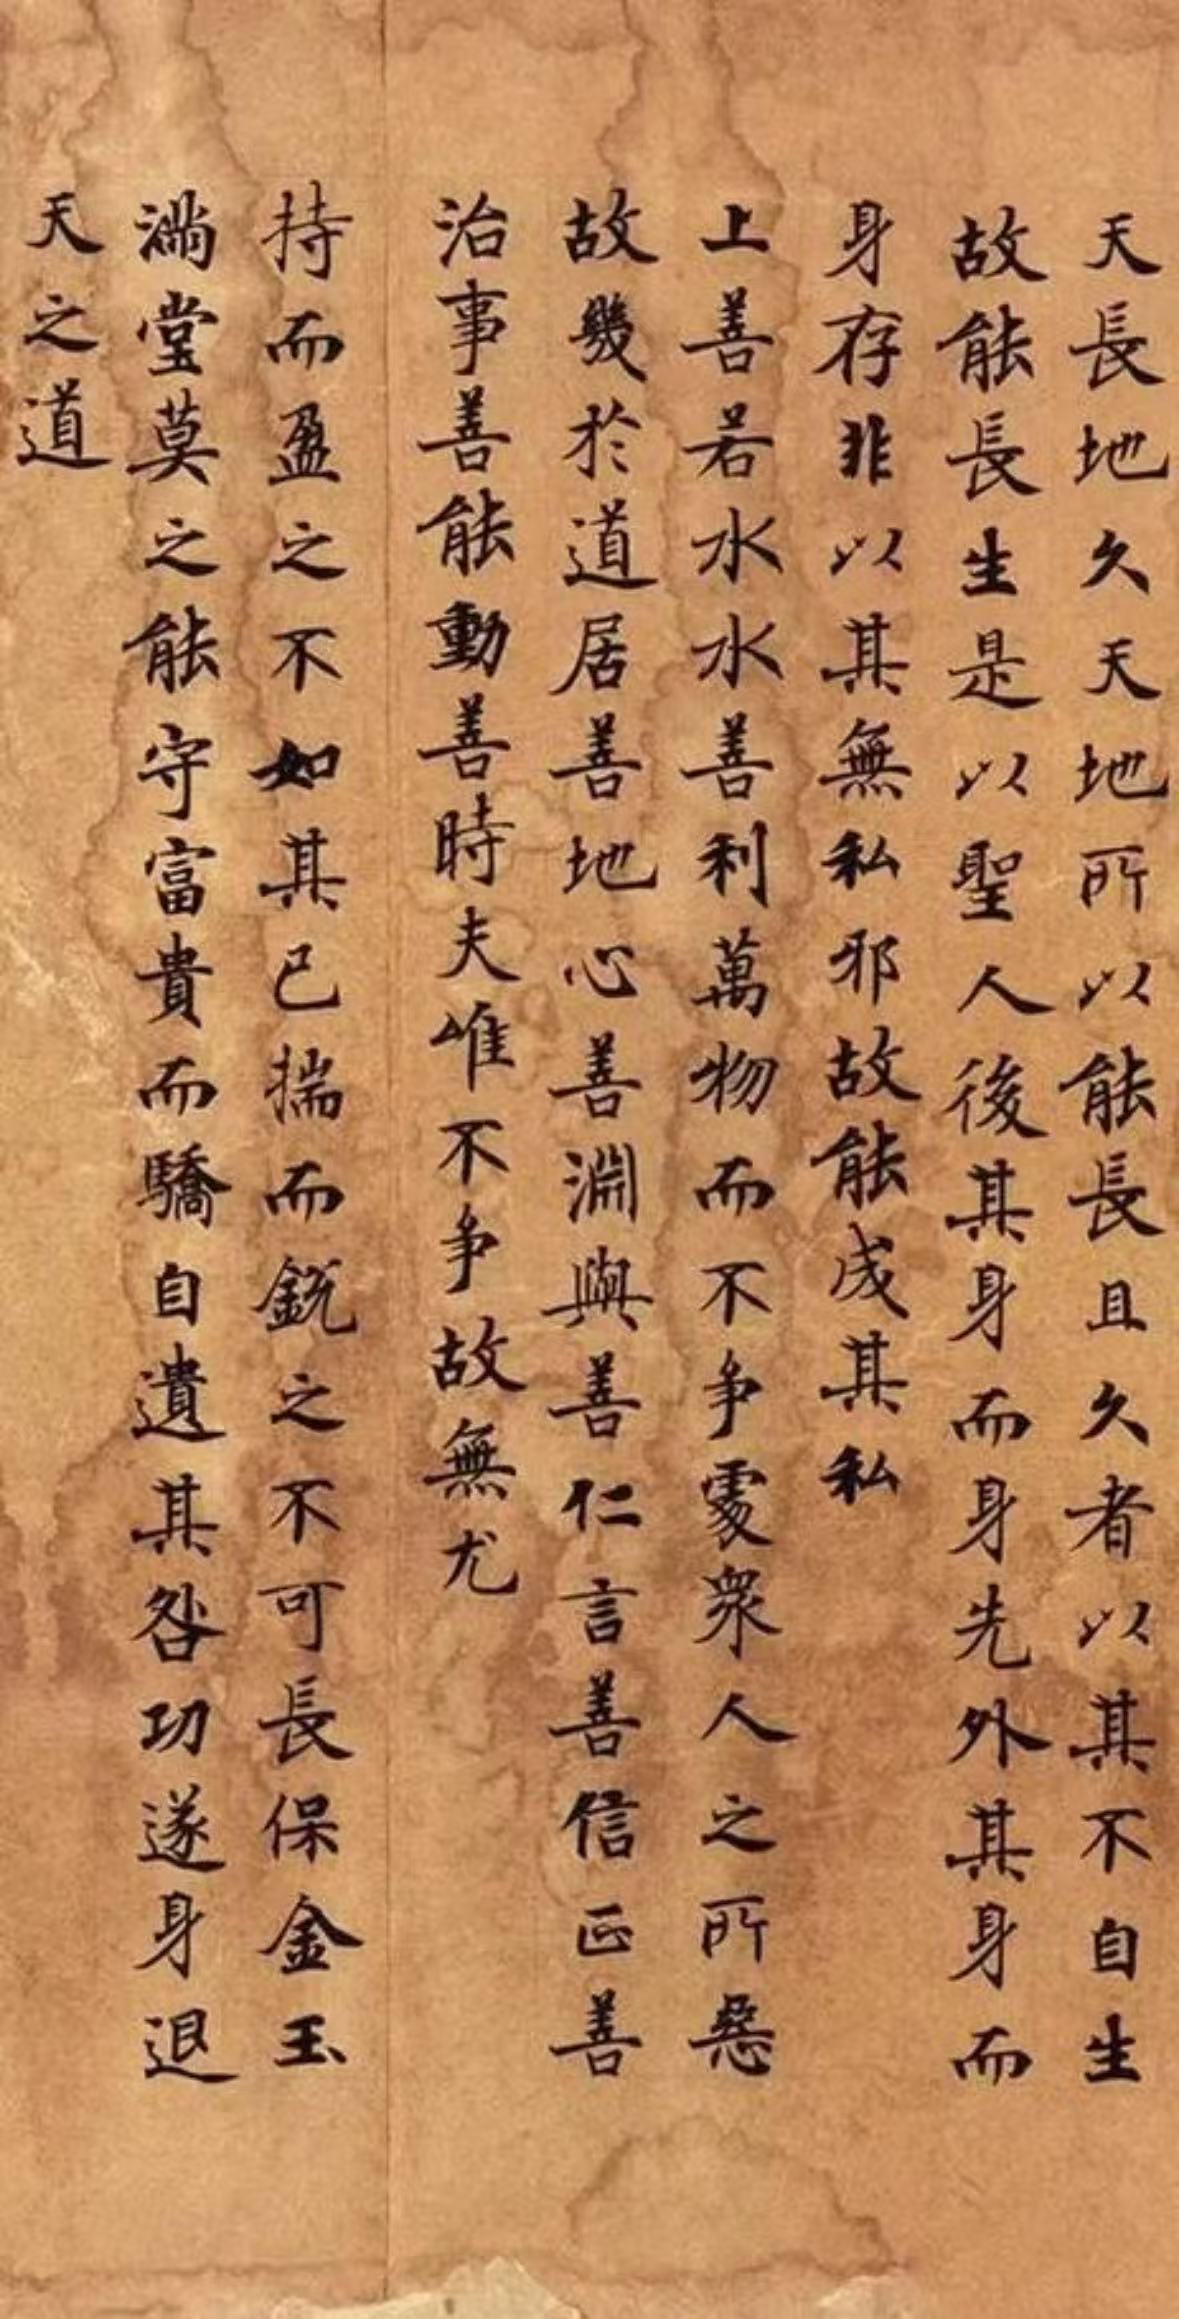 天長地久天地所以能長且久者以其不自生
故能長生是以聖人後其身而身先外其身而
身存非以其無私邪故能成其私
上善若水水善利萬物而不爭處衆人之所惡
故幾於道居善地心善淵與善仁言善信正善
治事善能動善時夫唯不爭故無尤
持而盈之不如其已揣而銳之不可長保金玉
滿堂莫之能守富貴而驕自遺其咎功遂身退
天之道